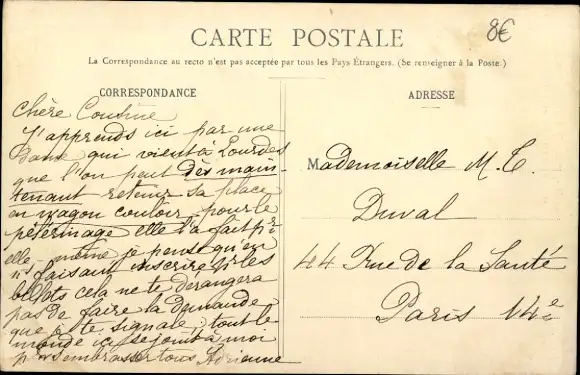 8€
CARTE POSTALE
La Correspondance au recto n'est pas acceptée par tous les Pays Étrangers. (Se renseigner à la Poste.)
CORRESPONDANCE
ADRESSE
Chère Cousine
J'apprends ici par une
Dame qui vient à Lourdes
que l'on peut dès main-
tenant retenir sa place
en wagon couloir pour le
pélerinage elle l'a fait pr
elle-même je pense qu'en
faisant inscrire pr les
billets cela ne te dérangera
pas de faire la demande
que je te signale; tout le
monde ici se joint à moi
pr vs embrasser tous Adrienne
Mademoiselle M. C.
Duval
44 Rue de la Santé
Paris 14e